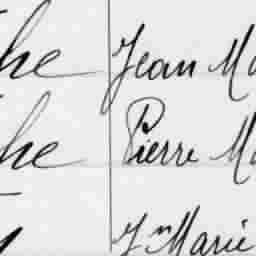 he Jean Ma
he Pierre Ma
Jn Marie